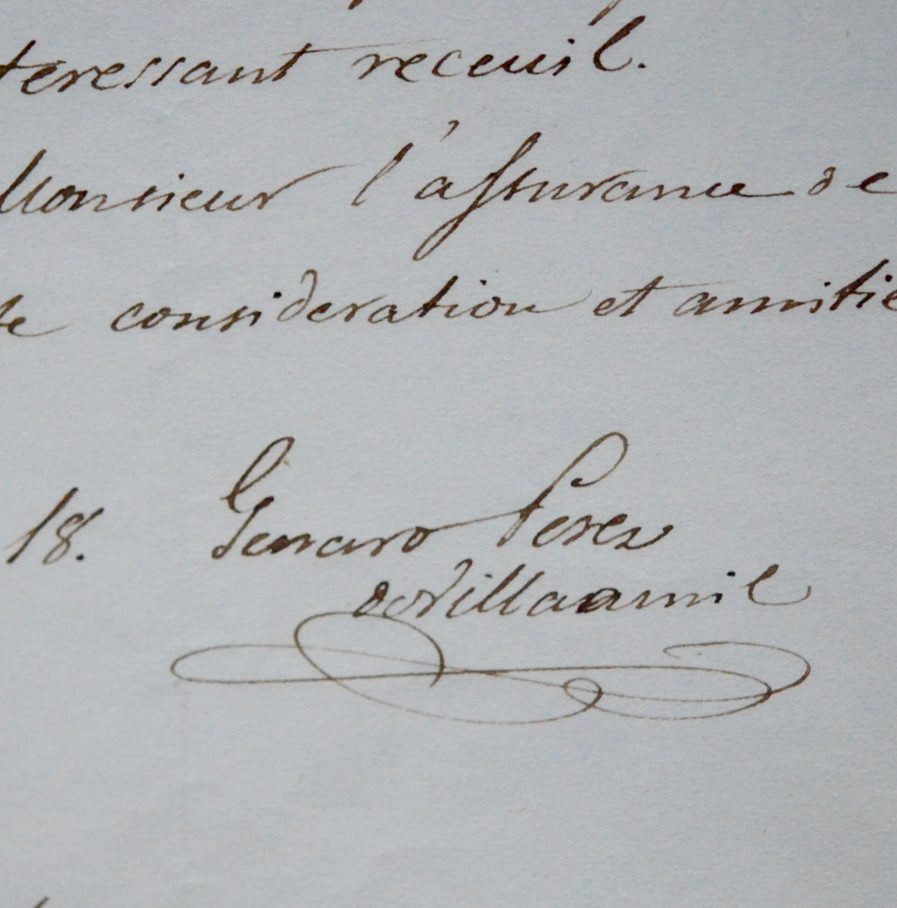 teressant receuil.
Monsieur l'assurance de
te consideration et amitie
18. Genaro Perez
de Villaamil